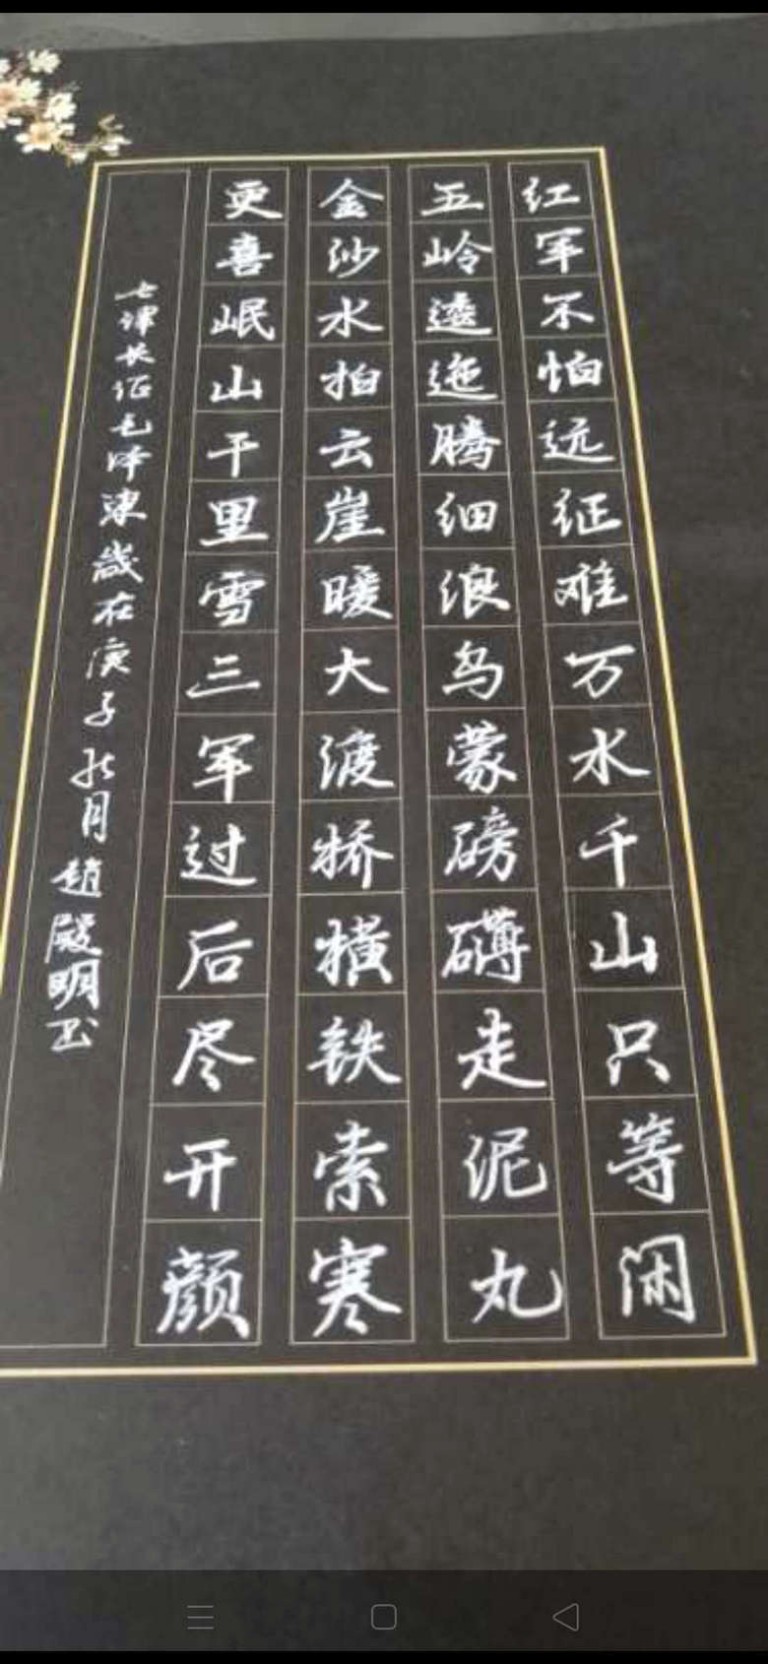 红军不怕远征难万水千山只等闲
五岭逶迤腾细浪乌蒙磅礴走泥丸
金沙水拍云崖暖大渡桥横铁索寒
更喜岷山千里雪三军过后尽开颜
七律长征毛泽東歲在庚子月趙殿明书